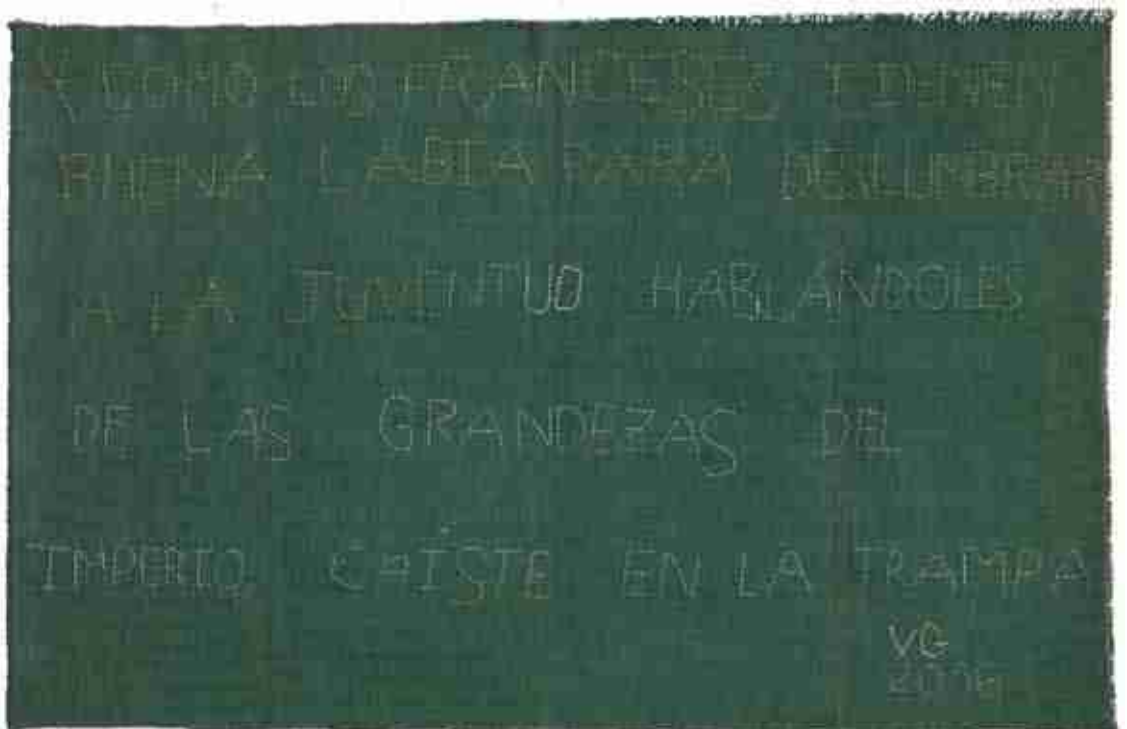 Y COMO LOS FRANCESES TIENEN
BUENA LABIA PARA DESLUMBRAR
A LA JUVENTUD HABLÁNDOLES
DE LAS GRANDEZAS DEL
IMPERIO, CAÍSTE EN LA TRAMPA
VG